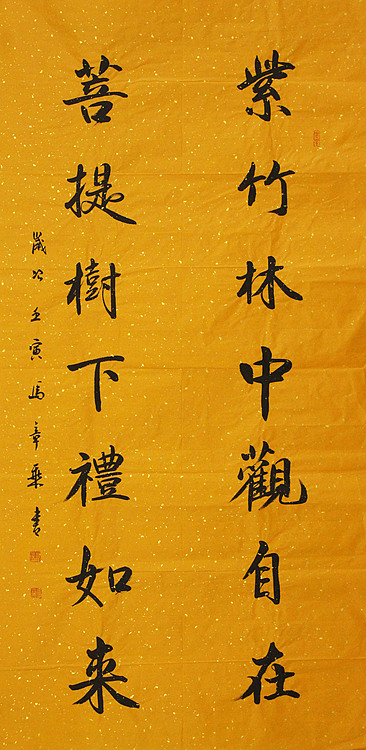 紫竹林中觀自在
菩提樹下禮如来
歲次壬寅馬章乘書